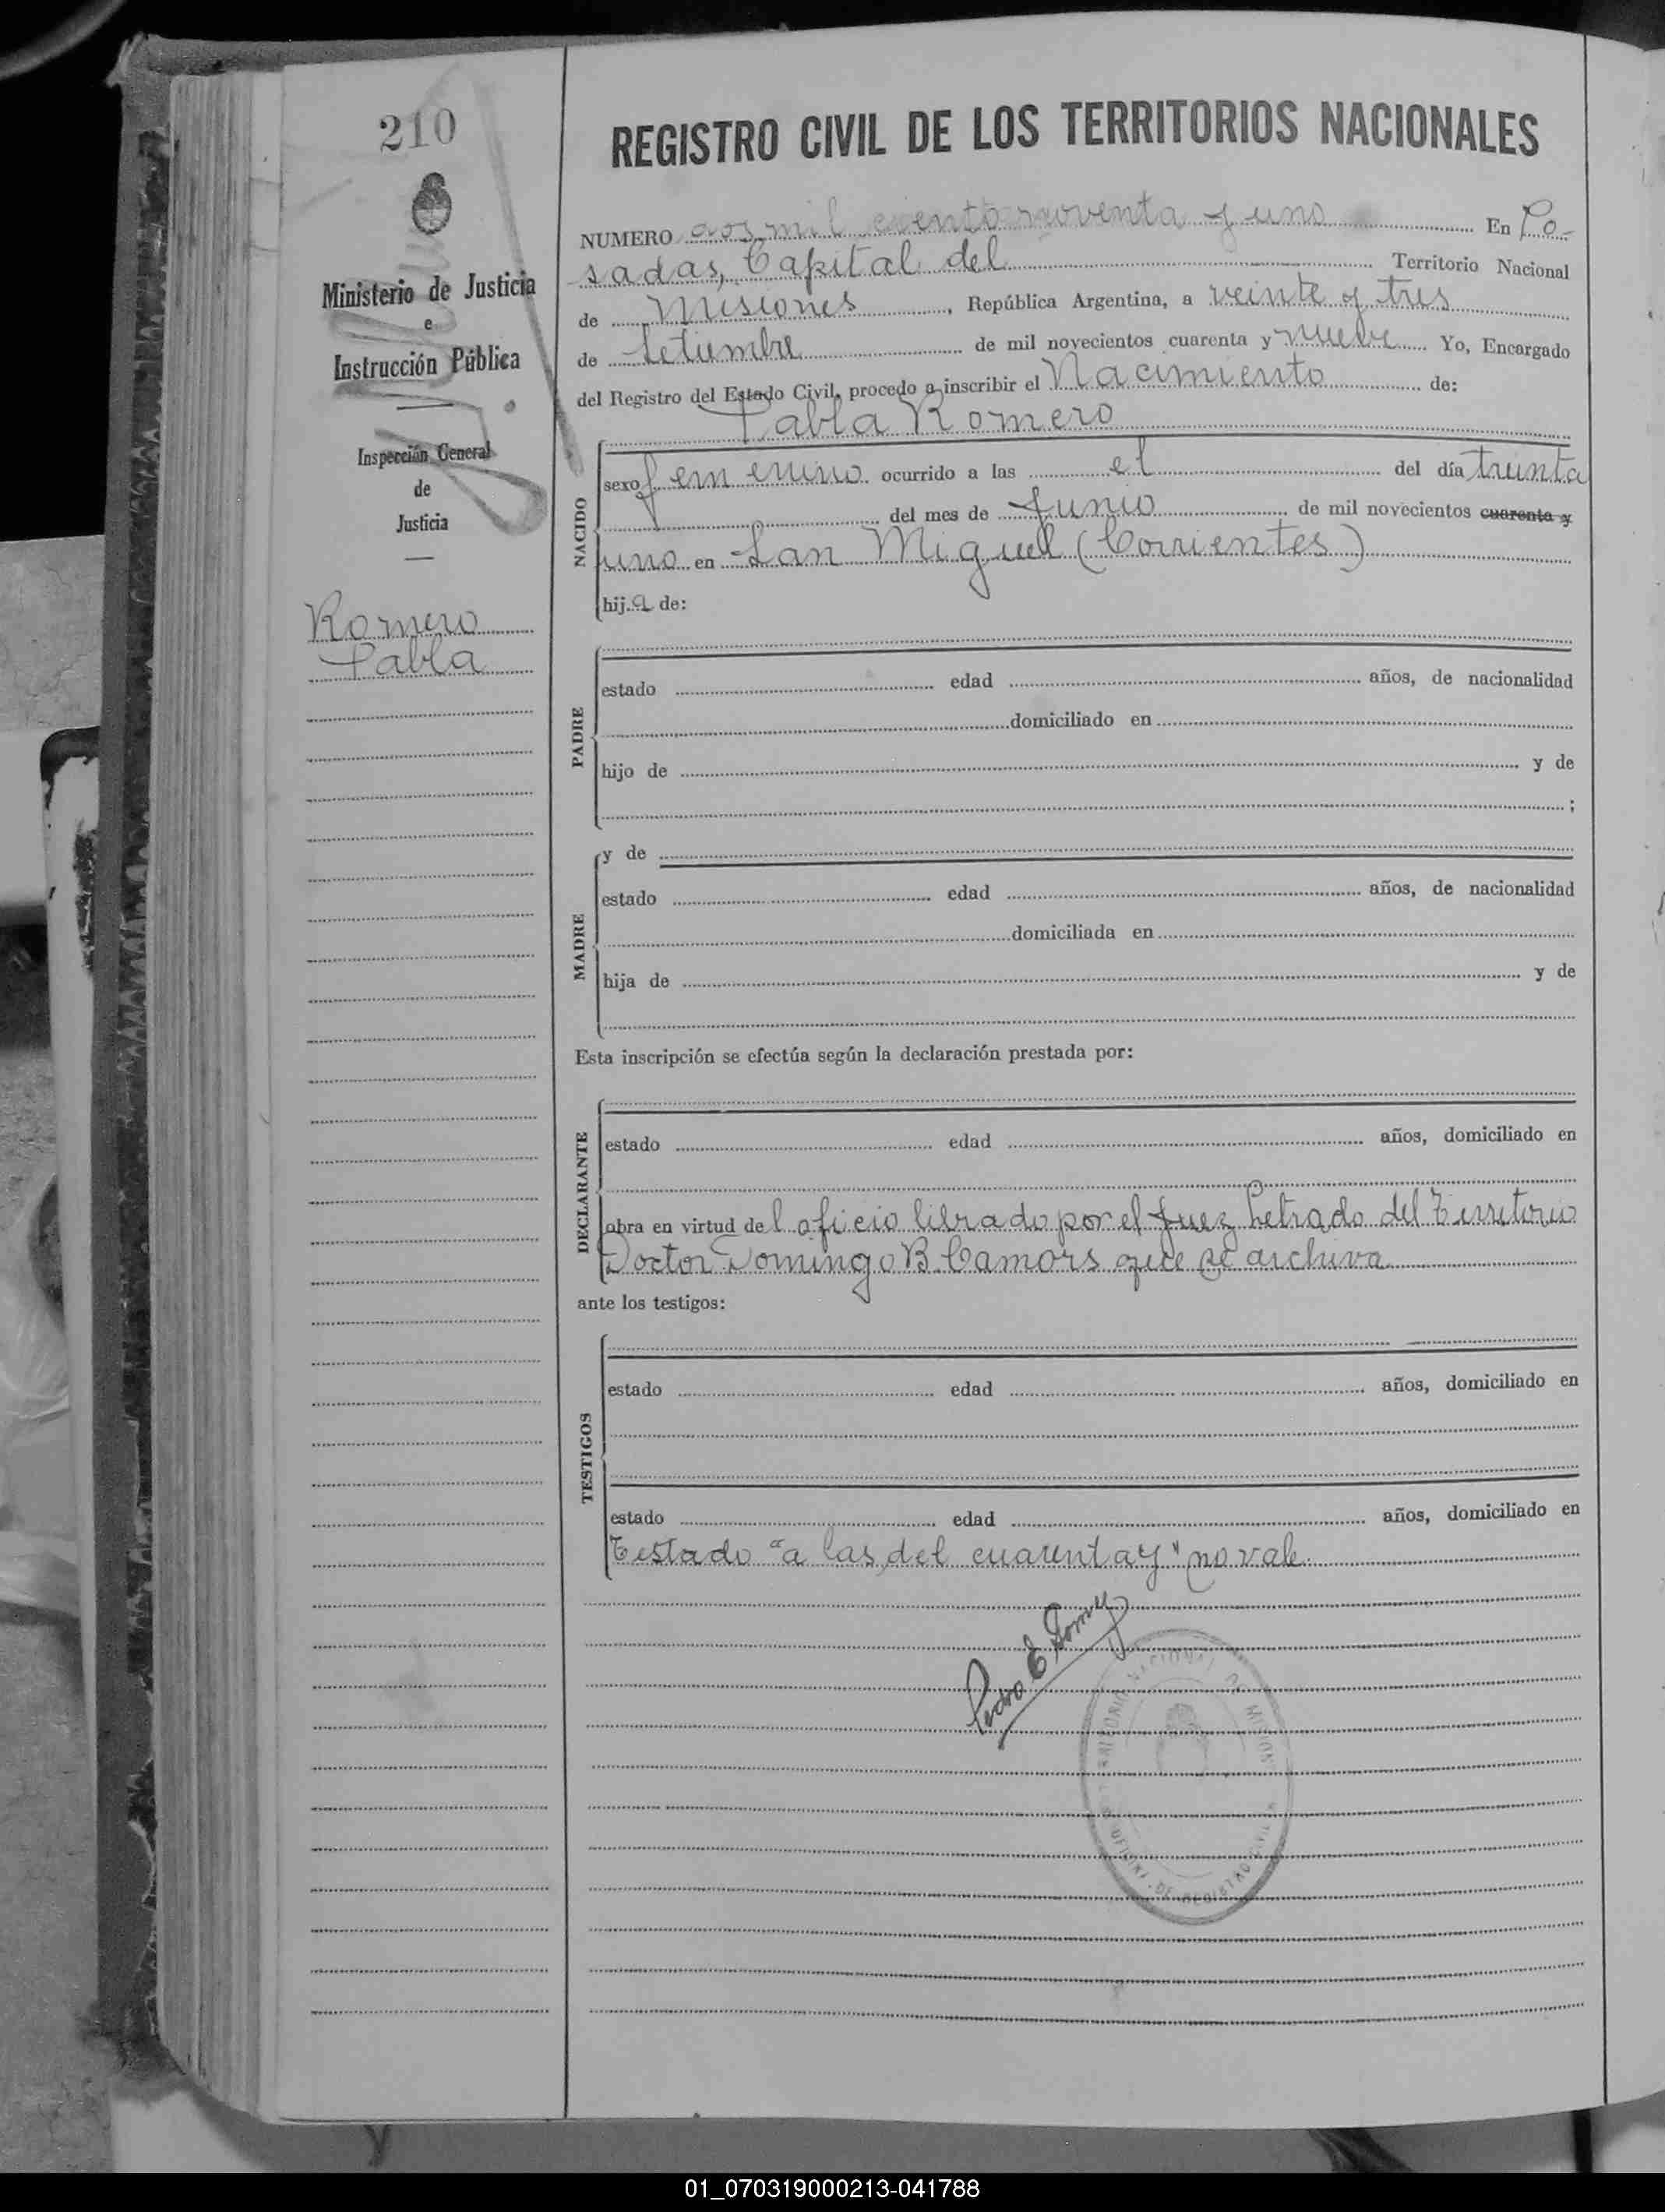 210
REGISTRO CIVIL DE LOS TERRITORIOS NACIONALES
NUMERO dos mil ciento noventa y uno En Po-
sadas, Capital del Territorio Nacional
de Misiones, República Argentina, a veinte y tres
de Setiembre de mil novecientos cuarenta y nueve Yo, Encargado
del Registro del Estado Civil, procedo a inscribir el Nacimiento de:
Pabla Romero
NACIDO
sexo femenino ocurrido a las el del día treinta
del mes de Junio de mil novecientos cuarenta y
uno en San Miguel (Corrientes)
hija de:
Ministerio de Justicia
e
Instrucción Pública
Inspección General
de
Justicia
Romero
Pabla
PADRE
estado edad años, de nacionalidad
domiciliado en
hijo de y de
;
MADRE
y de
estado edad años, de nacionalidad
domiciliada en
hija de y de
Esta inscripción se efectúa según la declaración prestada por:
DECLARANTE
estado edad años, domiciliado en
obra en virtud del oficio librado por el Juez Letrado del Territorio
Doctor Domingo B. Camors que se archiva
ante los testigos:
TESTIGOS
estado edad años, domiciliado en
estado edad años, domiciliado en
Testado "a las, del cuarenta y" no vale.
Pedro E. Gomez
TERRITORIO NACIONAL DE MISIONES
OFICINA DE REGISTRO CIVIL
01_070319000213-041788